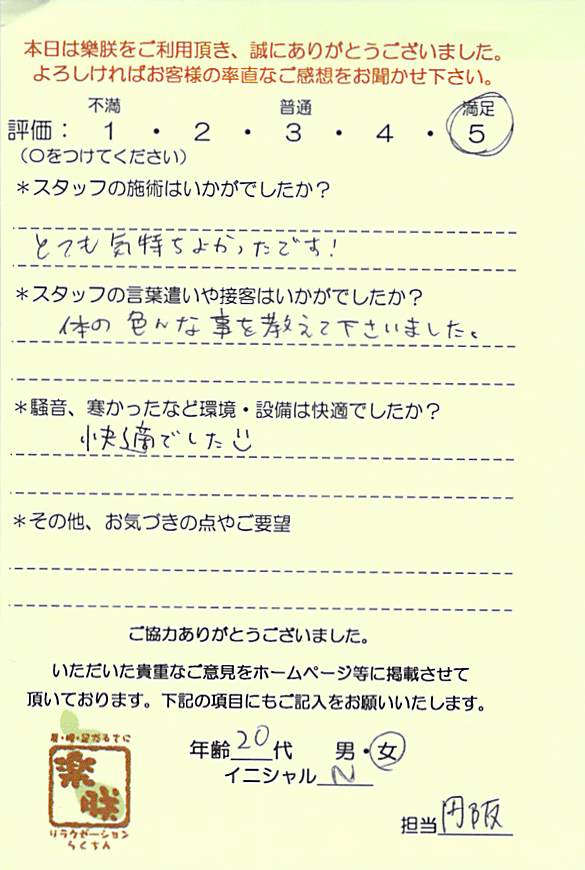 本日は樂朕をご利用頂き、誠にありがとうございました。
よろしければお客様の率直なご感想をお聞かせ下さい。
不満 普通 満足
評価： 1 ・ 2 ・ 3 ・ 4 ・ 5
（○をつけてください）
＊スタッフの施術はいかがでしたか？
とても気持ちよかったです！
＊スタッフの言葉遣いや接客はいかがでしたか？
体の色んな事を教えて下さいました。
＊騒音、寒かったなど環境・設備は快適でしたか？
快適でした
＊その他、お気づきの点やご要望
ご協力ありがとうございました。
いただいた貴重なご意見をホームページ等に掲載させて
頂いております。下記の項目にもご記入をお願いいたします。
年齢20代 男・女
イニシャルN
楽朕
リラクゼーション
らくちん
担当 円阪